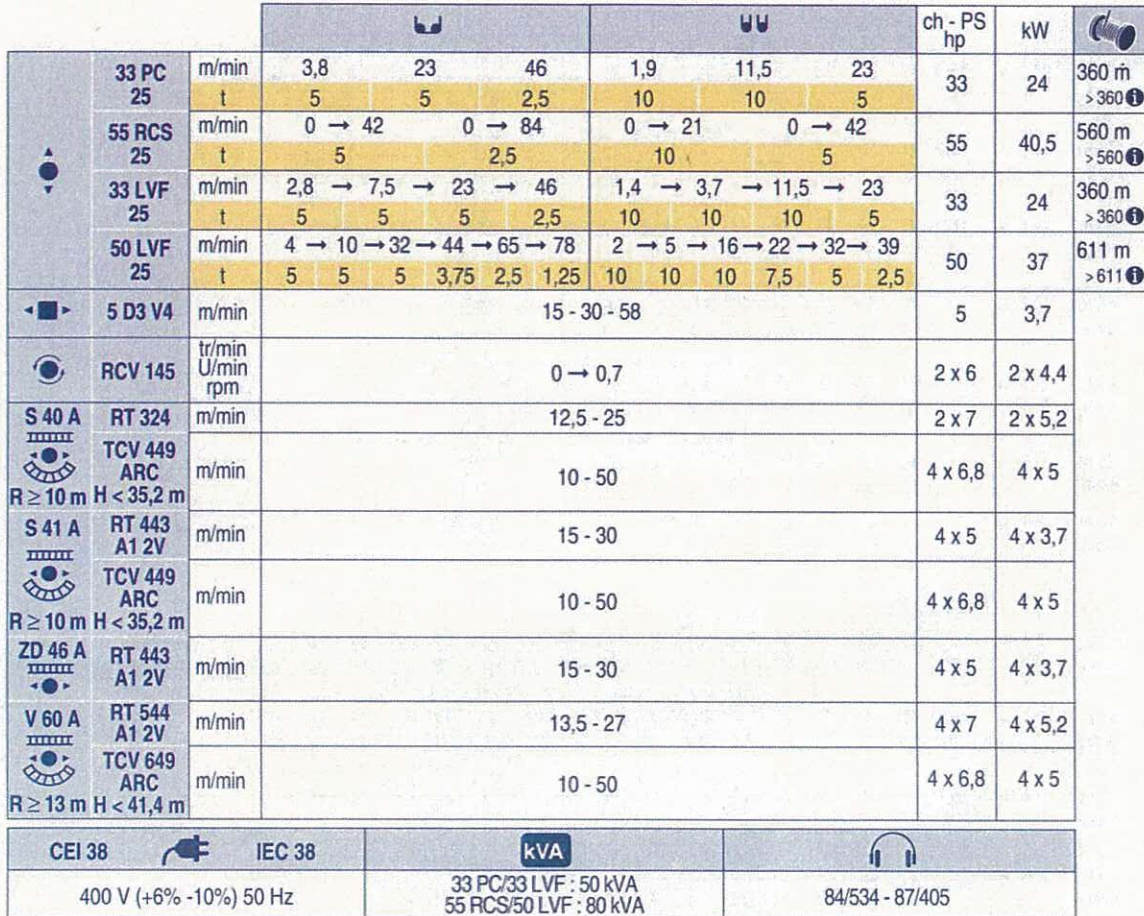 ch - PS hp kW
33 PC 25 m/min 3,8 23 46 1,9 11,5 23 33 24 360 m
t 5 5 2,5 10 10 5 > 360
55 RCS 25 m/min 0 → 42 0 → 84 0 → 21 0 → 42 55 40,5 560 m
t 5 2,5 10 5 > 560
33 LVF 25 m/min 2,8 → 7,5 → 23 → 46 1,4 → 3,7 → 11,5 → 23 33 24 360 m
t 5 5 5 2,5 10 10 10 5 > 360
50 LVF 25 m/min 4 → 10 → 32 → 44 → 65 → 78 2 → 5 → 16 → 22 → 32 → 39 50 37 611 m
t 5 5 5 3,75 2,5 1,25 10 10 10 7,5 5 2,5 > 611
5 D3 V4 m/min 15 - 30 - 58 5 3,7
RCV 145 tr/min U/min rpm 0 → 0,7 2 x 6 2 x 4,4
S 40 A RT 324 m/min 12,5 - 25 2 x 7 2 x 5,2
TCV 449 ARC m/min 10 - 50 4 x 6,8 4 x 5
R ≥ 10 m H < 35,2 m
S 41 A RT 443 A1 2V m/min 15 - 30 4 x 5 4 x 3,7
TCV 449 ARC m/min 10 - 50 4 x 6,8 4 x 5
R ≥ 10 m H < 35,2 m
ZD 46 A RT 443 A1 2V m/min 15 - 30 4 x 5 4 x 3,7
V 60 A RT 544 A1 2V m/min 13,5 - 27 4 x 7 4 x 5,2
TCV 649 ARC m/min 10 - 50 4 x 6,8 4 x 5
R ≥ 13 m H < 41,4 m
CEI 38 IEC 38 kVA
400 V (+6% -10%) 50 Hz
33 PC/33 LVF : 50 kVA
55 RCS/50 LVF : 80 kVA
84/534 - 87/405